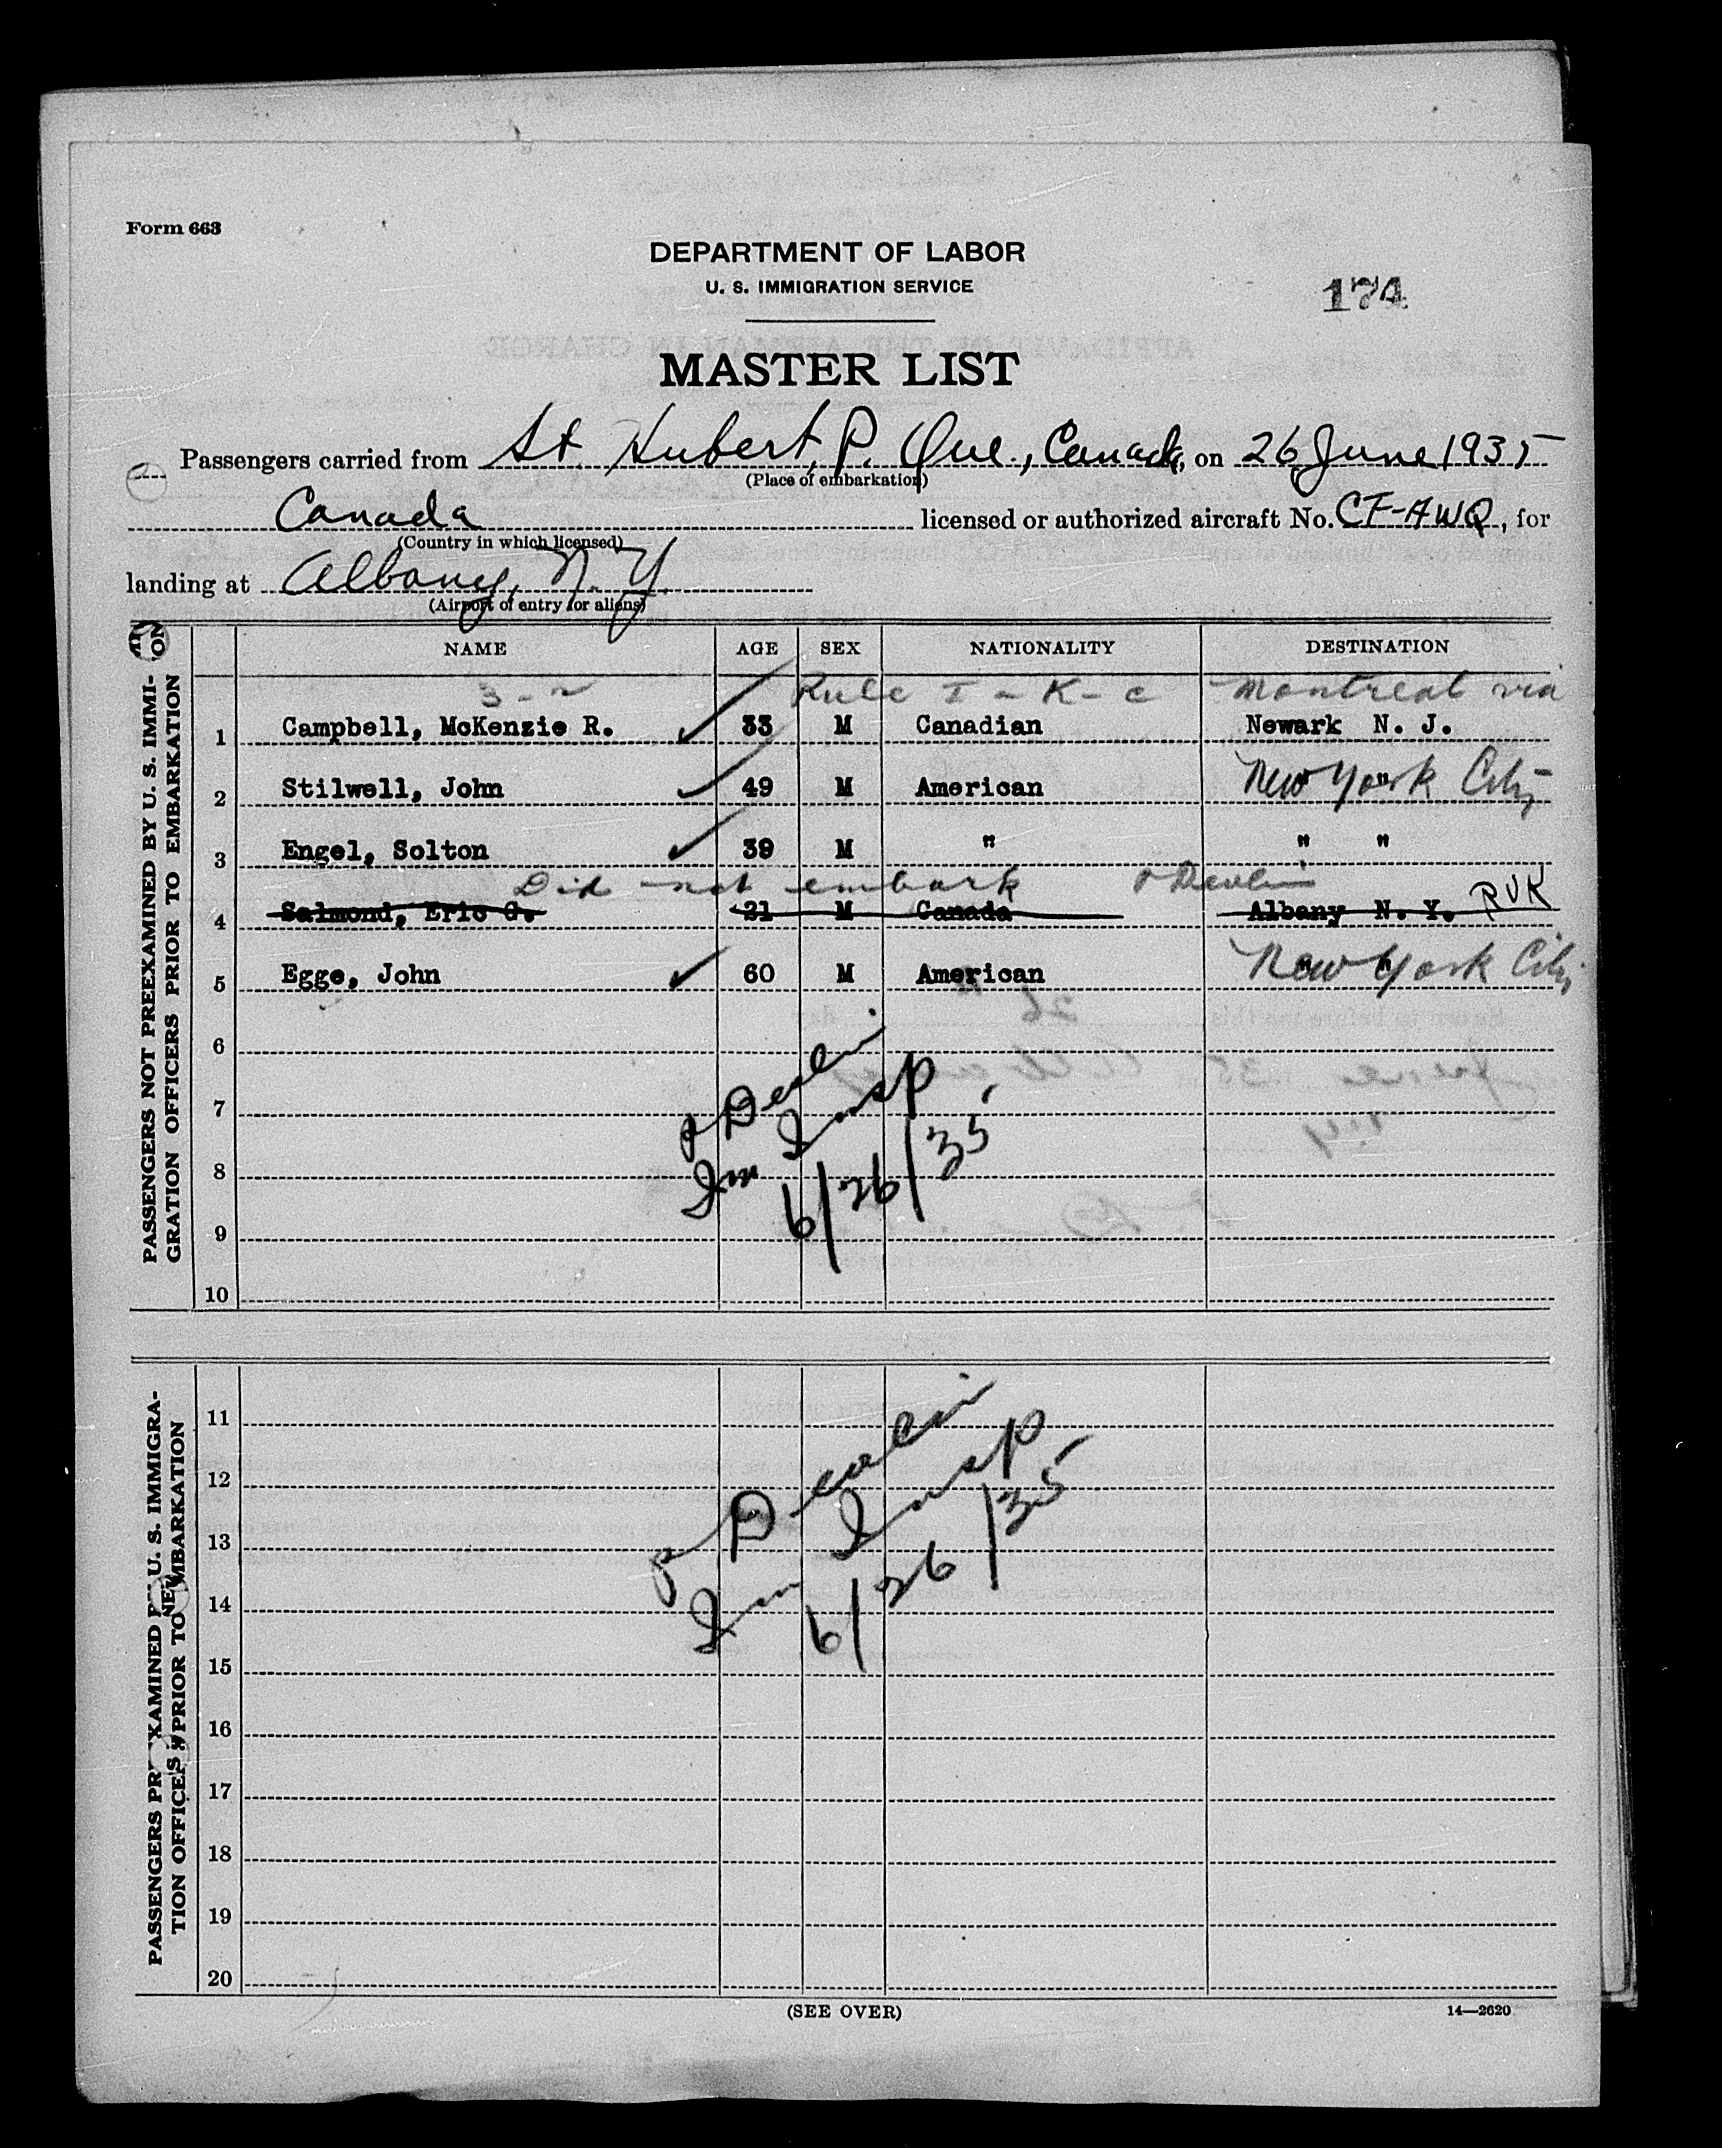 Form 663
DEPARTMENT OF LABOR
U. S. IMMIGRATION SERVICE
174
MASTER LIST
Passengers carried from St. Hubert, P. Que., Canada, on 26 June 1935
(Place of embarkation)
Canada licensed or authorized aircraft No. CF-AWQ, for
(Country in which licensed)
landing at Albany, N. Y.
(Airport of entry for aliens)
NAME AGE SEX NATIONALITY DESTINATION
PASSENGERS NOT PREEXAMINED BY U. S. IMMI-
GRATION OFFICERS PRIOR TO EMBARKATION
3-2 Rule I-K-c Montreal via
1 Campbell, McKenzie R. 33 M Canadian Newark N. J.
2 Stilwell, John 49 M American New York City
3 Engel, Solton 39 M " " "
Did not embark P Devlin
4 Salmond, Eric G. 21 M Canada Albany N. Y. RVK
5 Egge, John 60 M American New York City
6
7
8
9
10
P Devlin
Imm Insp
6/26/35
PASSENGERS PR XAMINED U. S. IMMIGRA-
TION OFFICE S PRIOR TO MBARKATION
11
12
13
14
15
16
17
18
19
20
P Devlin
Imm Insp
6/26/35
(SEE OVER)
14—2620